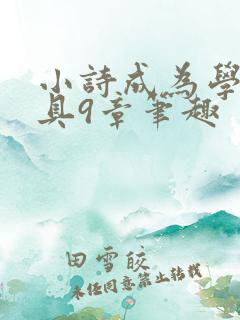 小詩成為學
具9章筆趣
田雪皎
未经同意禁止转载